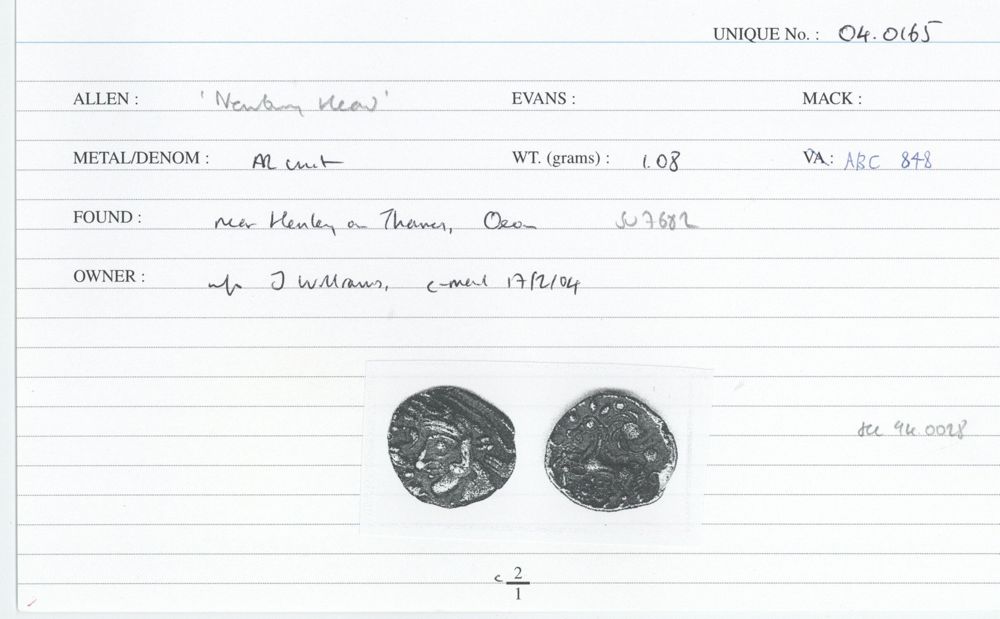 UNIQUE No. : 04.0165
ALLEN : 'Newbury Head' EVANS : MACK :
METAL/DENOM : AR unit WT. (grams) : 1.08 VA : ABC 848
FOUND : near Henley on Thames, Oxon SU 7682
OWNER : J Williams, 17/2/04
94.0028
c 2
1